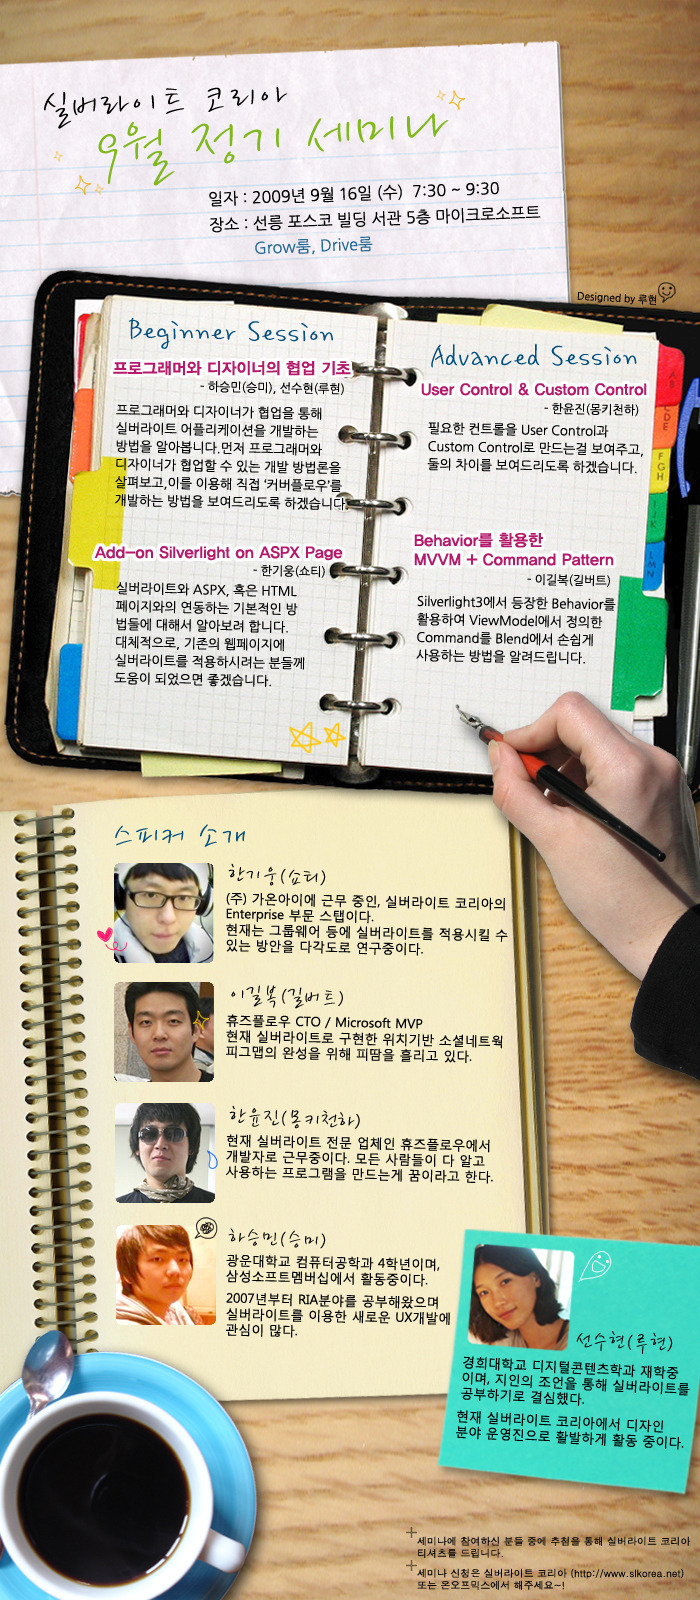 실버라이트 코리아
9월 정기 세미나
일자 : 2009년 9월 16일 (수) 7:30 ~ 9:30
장소 : 선릉 포스코 빌딩 서관 5층 마이크로소프트
Grow룸, Drive룸
Designed by 루현
Beginner Session
프로그래머와 디자이너의 협업 기초
- 하승민(승미), 선수현(루현)
프로그래머와 디자이너가 협업을 통해
실버라이트 어플리케이션을 개발하는
방법을 알아봅니다.먼저 프로그래머와
디자이너가 협업할 수 있는 개발 방법론을
살펴보고,이를 이용해 직접 '커버플로우'를
개발하는 방법을 보여드리도록 하겠습니다.
Add-on Silverlight on ASPX Page
- 한기웅(쇼티)
실버라이트와 ASPX, 혹은 HTML
페이지와의 연동하는 기본적인 방
법들에 대해서 알아보려 합니다.
대체적으로, 기존의 웹페이지에
실버라이트를 적용하시려는 분들께
도움이 되었으면 좋겠습니다.
Advanced Session
User Control & Custom Control
- 한윤진(몽키천하)
필요한 컨트롤을 User Control과
Custom Control로 만드는걸 보여주고,
둘의 차이를 보여드리도록 하겠습니다.
Behavior를 활용한
MVVM + Command Pattern
- 이길복(길버트)
Silverlight3에서 등장한 Behavior를
활용하여 ViewModel에서 정의한
Command를 Blend에서 손쉽게
사용하는 방법을 알려드립니다.
CDE
FGH
IJK
LMN
스피커 소개
한기웅(쇼티)
(주) 가온아이에 근무 중인, 실버라이트 코리아의
Enterprise 부문 스탭이다.
현재는 그룹웨어 등에 실버라이트를 적용시킬 수
있는 방안을 다각도로 연구중이다.
이길복(길버트)
휴즈플로우 CTO / Microsoft MVP
현재 실버라이트로 구현한 위치기반 소셜네트웍
피그맵의 완성을 위해 피땀을 흘리고 있다.
한윤진(몽키천하)
현재 실버라이트 전문 업체인 휴즈플로우에서
개발자로 근무중이다. 모든 사람들이 다 알고
사용하는 프로그램을 만드는게 꿈이라고 한다.
하승민(승미)
광운대학교 컴퓨터공학과 4학년이며,
삼성소프트멤버십에서 활동중이다.
2007년부터 RIA분야를 공부해왔으며
실버라이트를 이용한 새로운 UX개발에
관심이 많다.
선수현(루현)
경희대학교 디지털콘텐츠학과 재학중
이며, 지인의 조언을 통해 실버라이트를
공부하기로 결심했다.
현재 실버라이트 코리아에서 디자인
분야 운영진으로 활발하게 활동 중이다.
세미나에 참여하신 분들 중에 추첨을 통해 실버라이트 코리아
티셔츠를 드립니다.
세미나 신청은 실버라이트 코리아 (http://www.slkorea.net)
또는 온오프믹스에서 해주세요~!